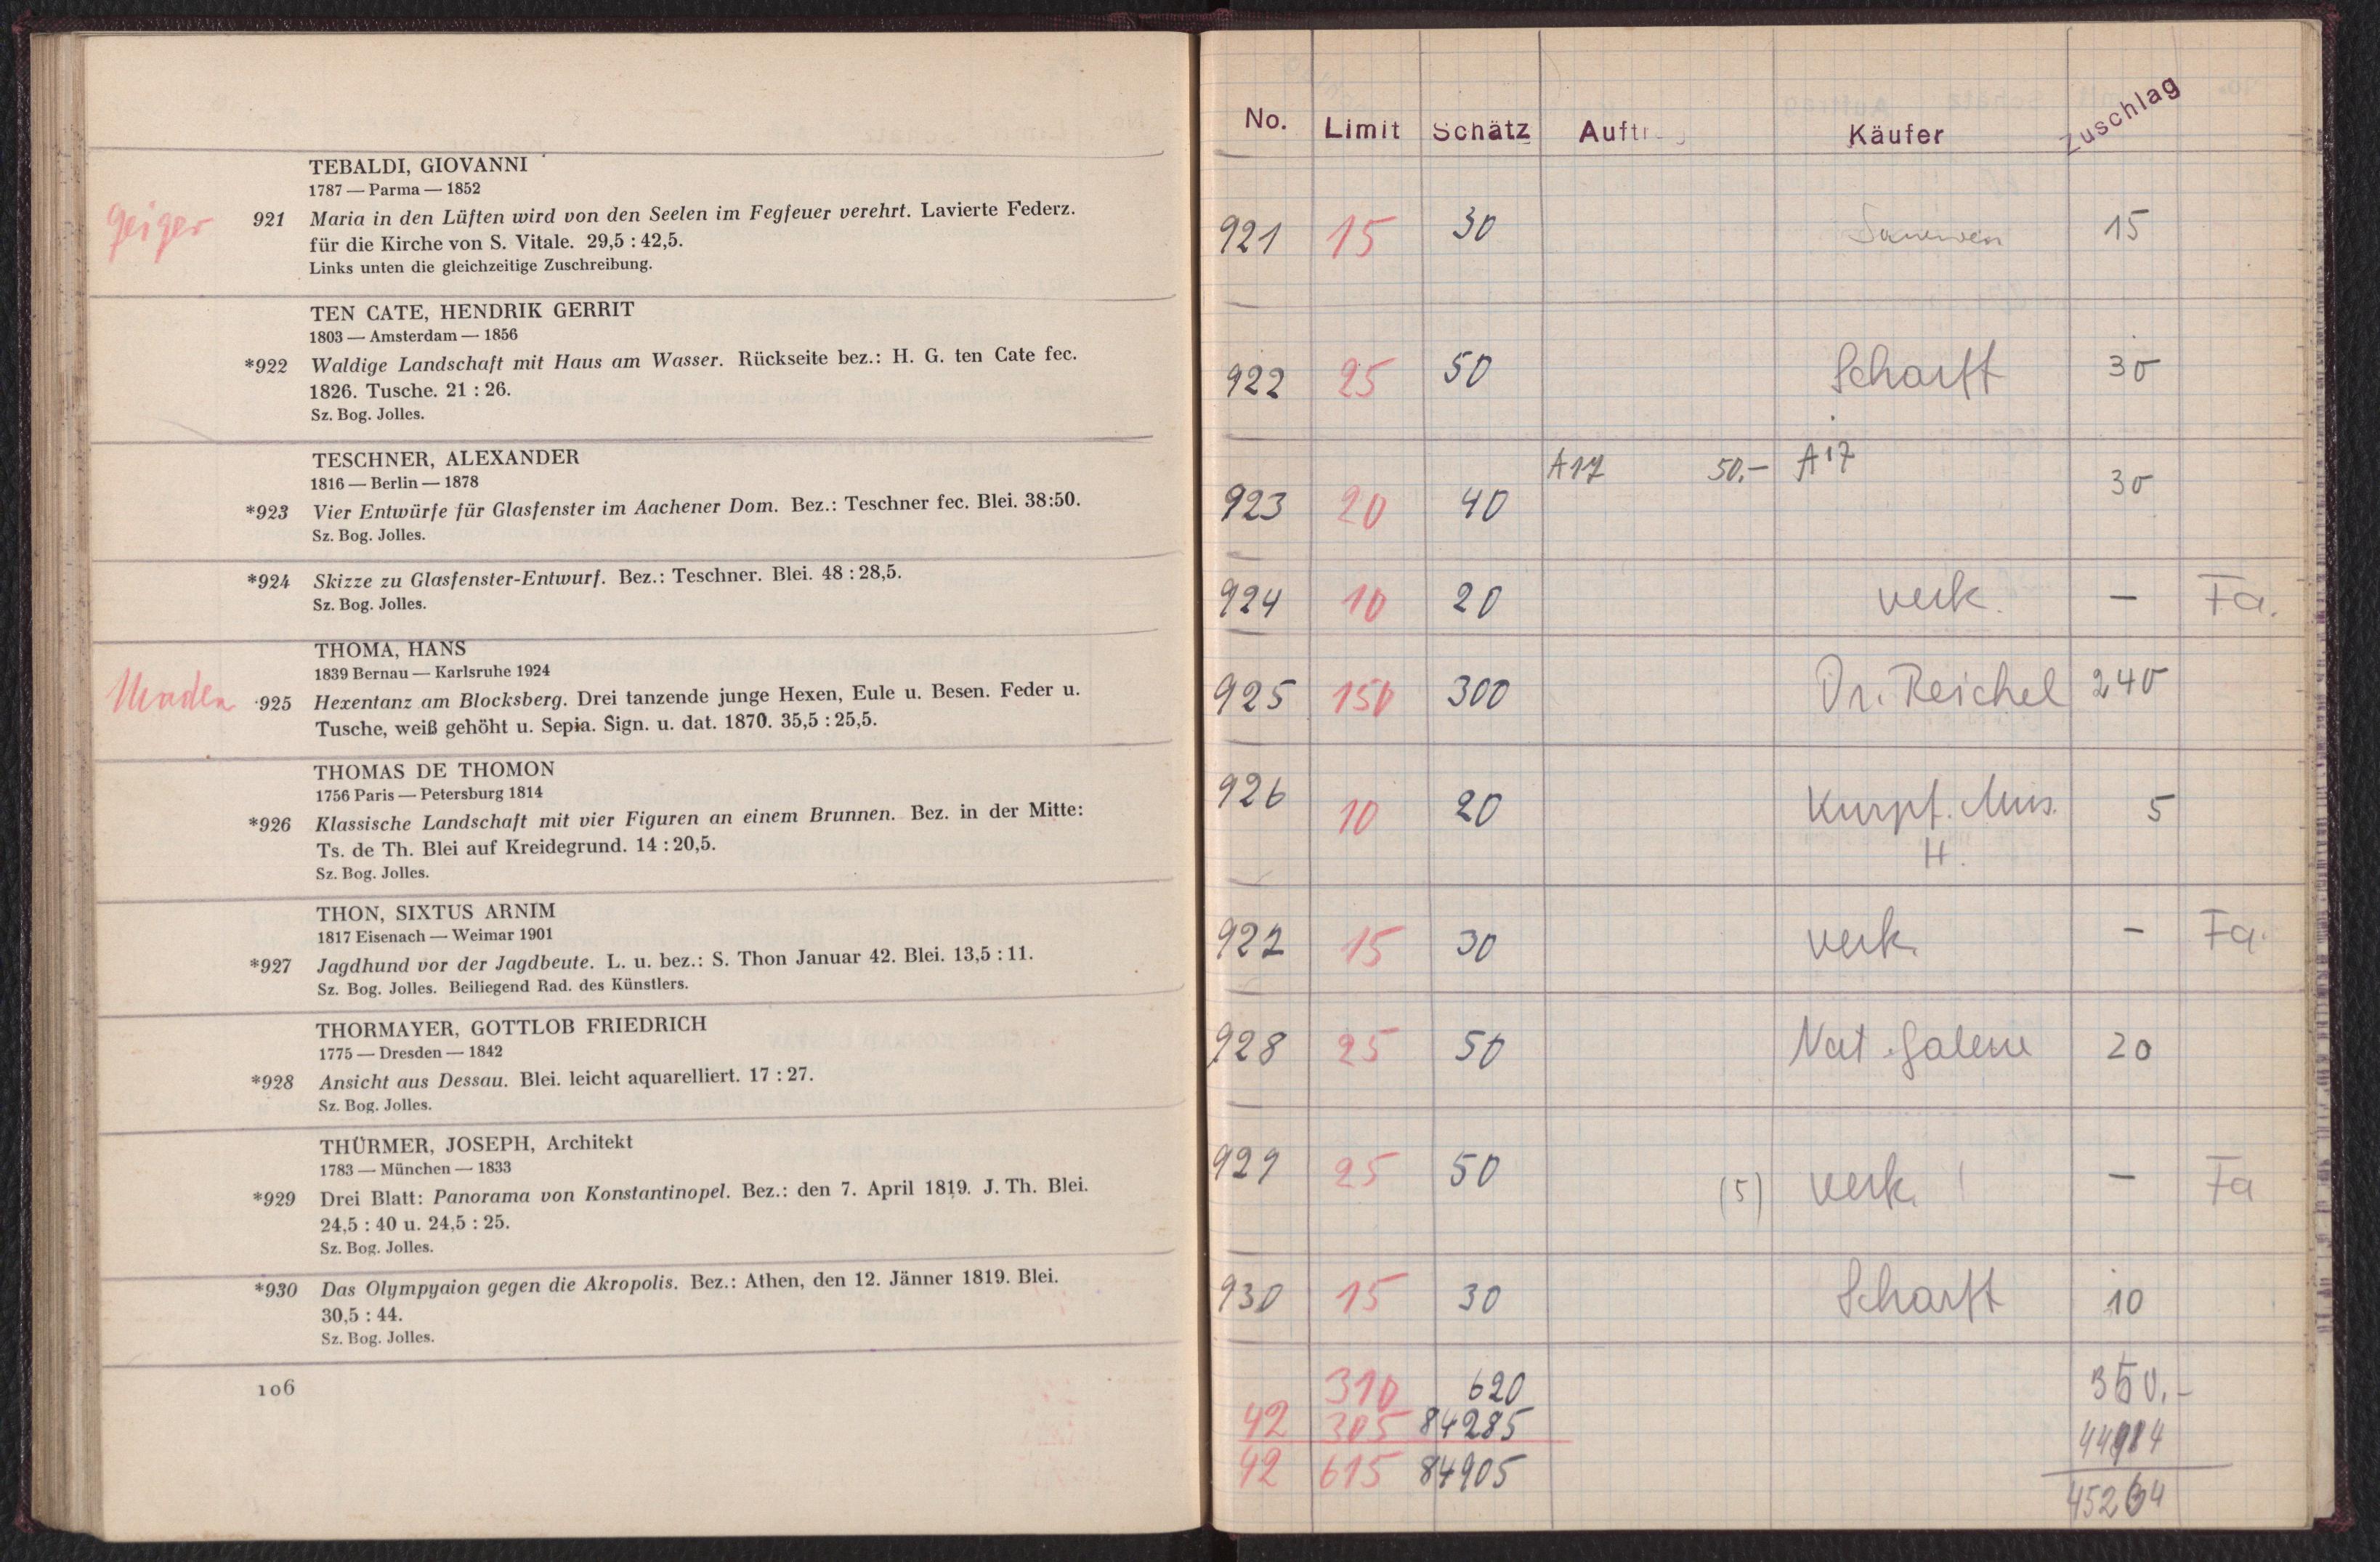 TEBALDI, GIOVANNI
1787 — Parma — 1852
geiger
921 Maria in den Lüften wird von den Seelen im Fegfeuer verehrt. Lavierte Federz.
für die Kirche von S. Vitale. 29,5 : 42,5.
Links unten die gleichzeitige Zuschreibung.
TEN CATE, HENDRIK GERRIT
1803 — Amsterdam — 1856
*922 Waldige Landschaft mit Haus am Wasser. Rückseite bez.: H. G. ten Cate fec.
1826. Tusche. 21 : 26.
Sz. Bog. Jolles.
TESCHNER, ALEXANDER
1816 — Berlin — 1878
*923 Vier Entwürfe für Glasfenster im Aachener Dom. Bez.: Teschner fec. Blei. 38:50.
Sz. Bog. Jolles.
*924 Skizze zu Glasfenster-Entwurf. Bez.: Teschner. Blei. 48 : 28,5.
Sz. Bog. Jolles.
THOMA, HANS
1839 Bernau — Karlsruhe 1924
925 Hexentanz am Blocksberg. Drei tanzende junge Hexen, Eule u. Besen. Feder u.
Tusche, weiß gehöht u. Sepia. Sign. u. dat. 1870. 35,5 : 25,5.
THOMAS DE THOMON
1756 Paris — Petersburg 1814
*926 Klassische Landschaft mit vier Figuren an einem Brunnen. Bez. in der Mitte:
Ts. de Th. Blei auf Kreidegrund. 14 : 20,5.
Sz. Bog. Jolles.
THON, SIXTUS ARNIM
1817 Eisenach — Weimar 1901
*927 Jagdhund vor der Jagdbeute. L. u. bez.: S. Thon Januar 42. Blei. 13,5 : 11.
Sz. Bog. Jolles. Beiliegend Rad. des Künstlers.
THORMAYER, GOTTLOB FRIEDRICH
1775 — Dresden — 1842
*928 Ansicht aus Dessau. Blei. leicht aquarelliert. 17 : 27.
Sz. Bog. Jolles.
THÜRMER, JOSEPH, Architekt
1783 — München — 1833
*929 Drei Blatt: Panorama von Konstantinopel. Bez.: den 7. April 1819. J. Th. Blei.
24,5 : 40 u. 24,5 : 25.
Sz. Bog. Jolles.
*930 Das Olympyaion gegen die Akropolis. Bez.: Athen, den 12. Jänner 1819. Blei.
30,5 : 44.
Sz. Bog. Jolles.
106
No. Limit Schätz Auftr Käufer Zuschlag
921 15 30 15
922 25 50 Scharff 30
923 20 40 A17 50.- A17 30
924 10 20 verk. — Fa.
925 150 300 Dr. Reichel 240
926 10 20 Kurpf. Mus. 5
H.
927 15 30 verk. — Fa.
928 25 50 Nat. Galerie 20
929 25 50 (5) verk. — Fa
930 15 30 Scharff 10
310 620 350.-
42 305 84285
42 615 84905